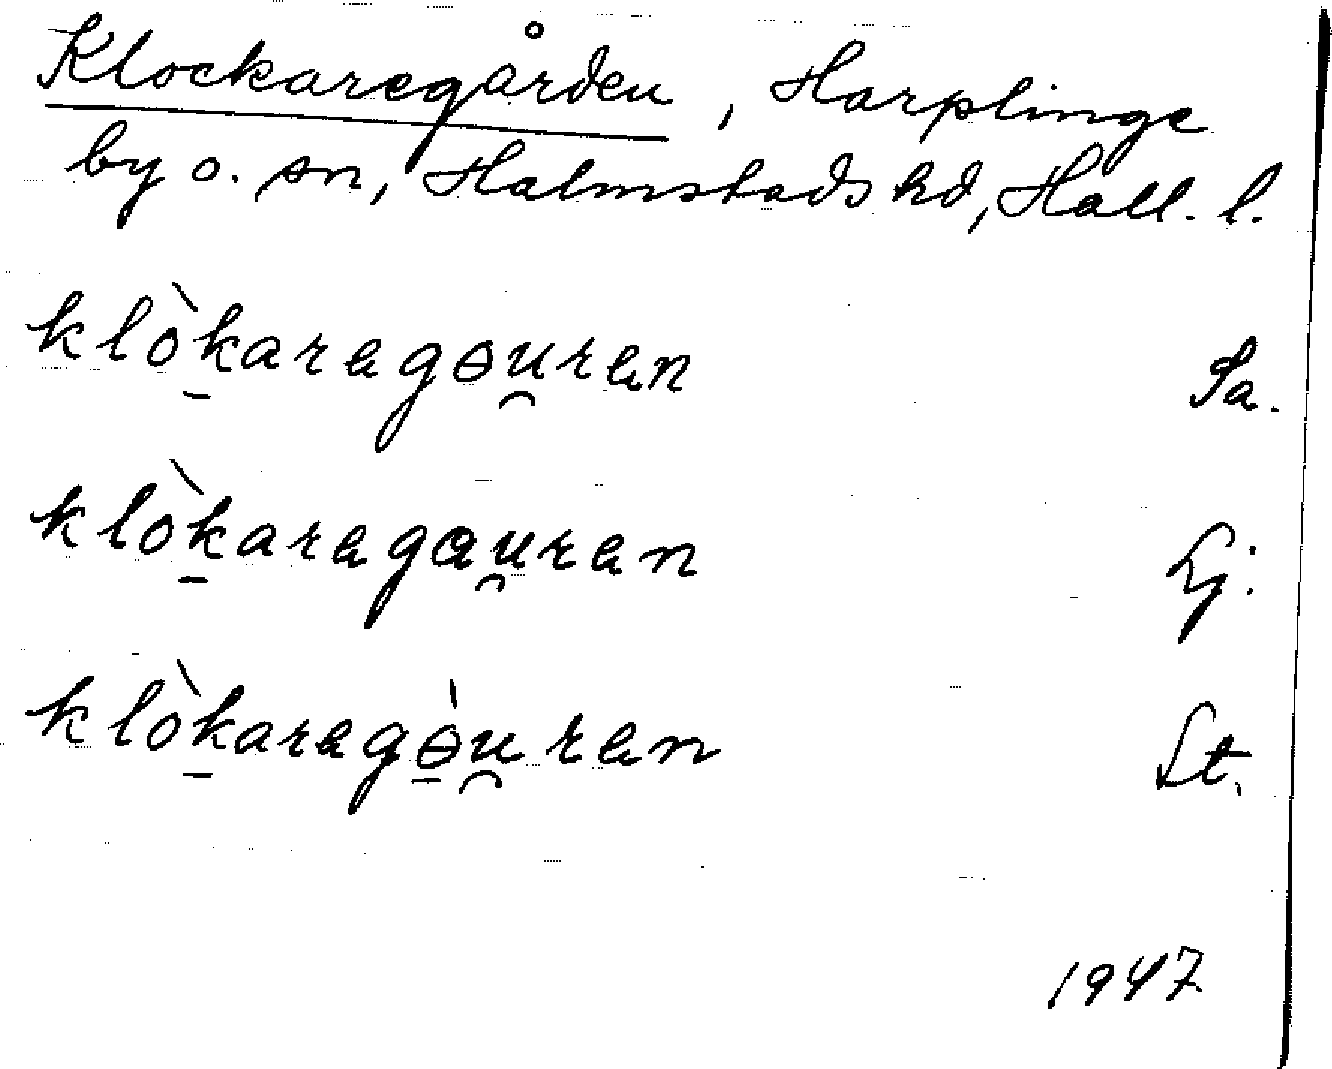 Klockaregården, Harplinge
by o. sn, Halmstads hd, Hall. l.
klòk̠aragɵu̯ran Sa.
klòk̠aragau̯ran Lj.
klòk̠aragɵ̠̀u̯ran St.
1947